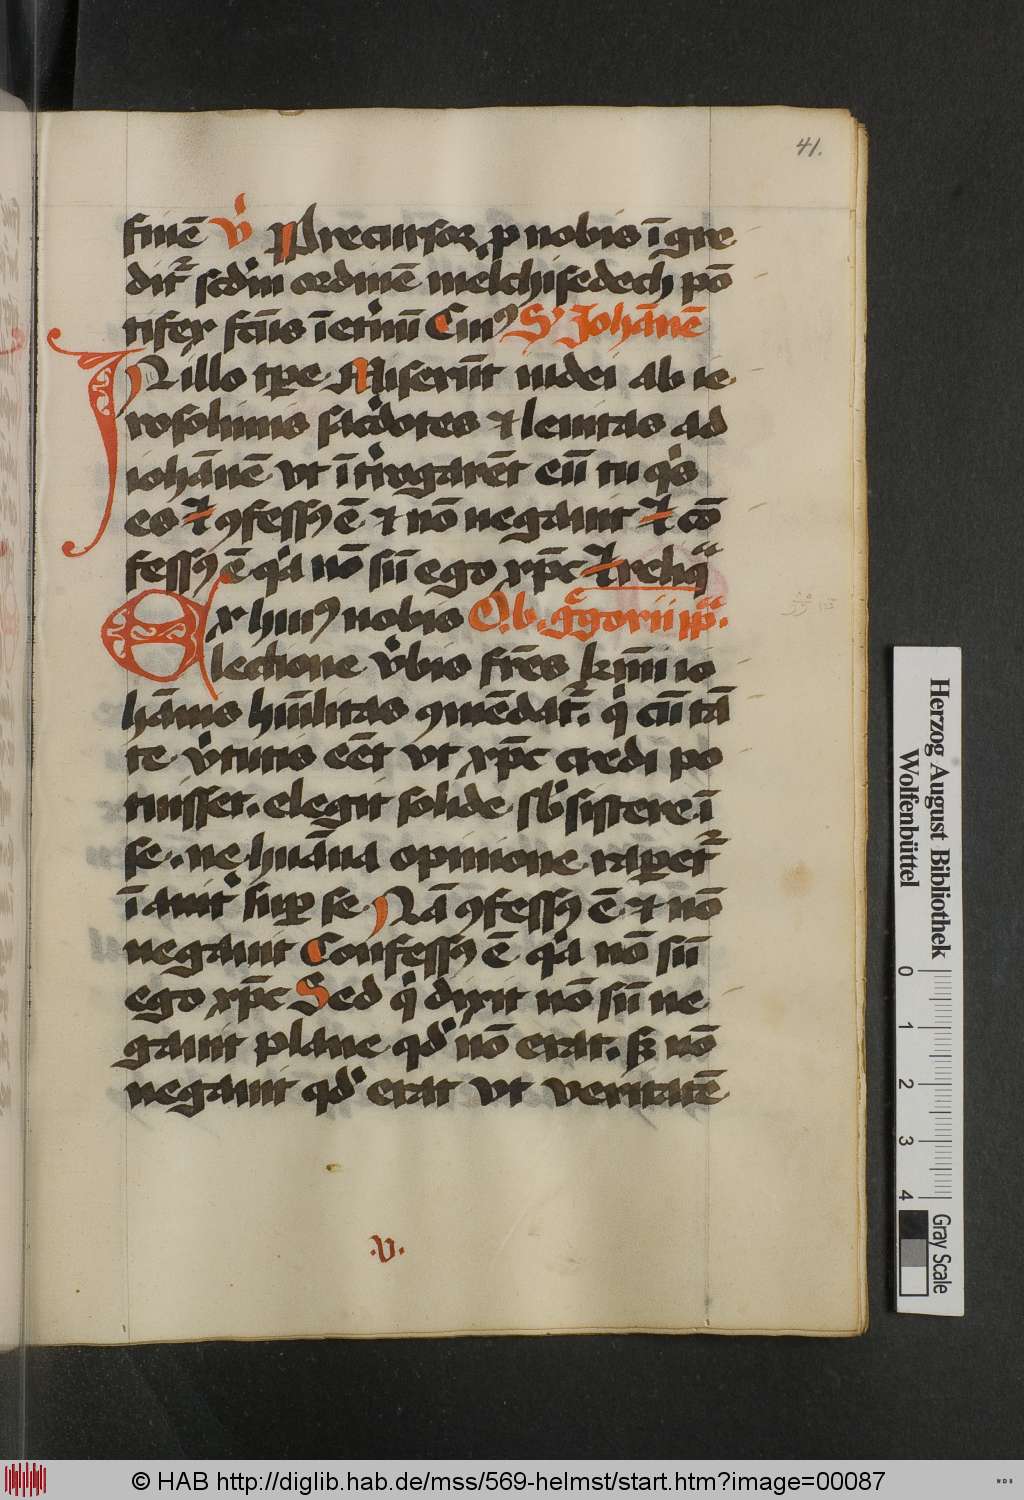 41.
finē v̾ Precursor p nobis īgre
dit᷑ scd̾m ordinē melchisedech pō
tifex fcūs īet̾nū Cui⁹ S' Johānē
JN illo tpe Miserūt iudei ab ie
rosolimis sac̾dotes ⁊ leuitas ad
iohānē vt īt̾rogarēt eū tu q̾s
es ⁊ ꝯfessꝰ ē ⁊ nō negauit ⁊ cō
fessꝰ ē q̾a nō sū ego xp̄c ⁊ reliqᵃ
Ex huiꝰ nobis O. b. gᵃgorii pp̄.
lectione v̾bis fr̄es km̄i io
hānis hūilitas ꝯmēdat᷑. q̾ cū tā
te v̾tutis eēt vt xp̄c credi po
tuisset. elegit solide sb̾sistere ī
se. ne huāna opinione raperet᷑
īanit̾ sup se Nā ꝯfessꝰ ē ⁊ nō
negauit Confessꝰ ē q̾a nō sū
ego xp̄c Sed q̾ dixit nō sū ne
gauit plane qd̾ nō erat. sꝫ nō
negauit qd̾ erat vt veritatē
.v.
Herzog August Bibliothek
Wolfenbüttel
0 1 2 3 4
Gray Scale
© HAB http://diglib.hab.de/mss/569-helmst/start.htm?image=00087